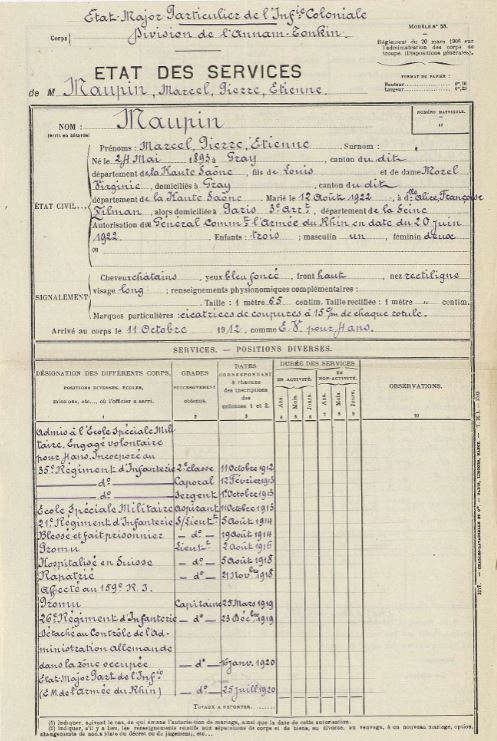 Etat-Major Particulier de l'Infie Coloniale
Corps
Division de l'Annam-Tonkin.
MODÈLE N° 58.
Règlement du 20 mars 1906 sur
l'administration des corps de
troupe (Dispositions générales).
FORMAT DU PAPIER :
ETAT DES SERVICES
de M Maupin, Marcel, Pierre, Etienne.
NUMÉRO MATRICULE.
NOM : Maupin
(écrit en bâtarde)
Prénoms : Marcel, Pierre, Etienne Surnom :
Né le 24 Mai 1893 à Gray, canton du dit
département de la Haute Saône, fils de Louis et de dame Morel
Virginie, domiciliés à Gray, canton du dit
ÉTAT CIVIL
département de la Haute Saône. Marié le 12 Août 1922, à dlle Alice, Françoise
Tilman, alors domiciliée à Paris 5e arrt, département de la Seine
Autorisation du Général Commt l'Armée du Rhin en date du 20 juin
1922. Enfants : trois ; masculin un, féminin deux
Cheveux châtains, yeux bleu foncé, front haut, nez rectiligne
SIGNALEMENT
visage long ; renseignements physionomiques complémentaires :
Taille : 1 mètre 65 centim. Taille rectifiée : 1 mètre " centim.
Marques particulières : cicatrices de coupures à 15 c/m de chaque rotule.
Arrivé au corps le 11 Octobre 1912, comme E.V. pour 4 ans.
SERVICES. — POSITIONS DIVERSES.
DÉSIGNATION DES DIFFÉRENTS CORPS,
POSITIONS DIVERSES, ÉCOLES,
Etats-maj., etc., où l'officier a servi.
GRADES
successivement
obtenus.
DATES
CORRESPONDANT
à chacune
des inscriptions
des colonnes 1 et 2.
DURÉE DES SERVICES
EN ACTIVITÉ.
EN NON-ACTIVITÉ.
Ans. Mois. Jours. Ans. Mois. Jours.
OBSERVATIONS.
1 2 3 4 5 6 7 8 9 10
Admis à l'Ecole Spéciale Mili
taire. Engagé volontaire
pour 4 ans. Incorporé au
35e Régiment d'Infanterie 2e classe 11 Octobre 1912
— do — Caporal 12 Février 1913
— do — Sergent 1er Octobre 1913
Ecole Spéciale Militaire Aspirant 11 Octobre 1913
21e Régiment d'Infanterie S/Lieutt 5 Août 1914
Blessé et fait prisonnier — do — 19 août 1914
Promu Lieutt 2 août 1916
Hospitalisé en Suisse — do — 5 août 1918
Rapatrié — do — 21 Novbre 1918
Affecté au 159e R.I.
Promu Capitaine 25 Mars 1919
26e Régiment d'Infanterie — do — 23 Décbre 1919
Détaché au Contrôle de l'Ad-
ministration Allemande
dans la zône occupée — do — 16 janv. 1920
Etat-Major Part. de l'Infie
(E.M. de l'Armée du Rhin) — do — 25 juillt 1920
TOTAUX A REPORTER
(1) Indiquer, suivant le cas, de qui émane l'autorisation de mariage, ainsi que la date de cette autorisation.
(2) Indiquer, s'il y a lieu, les renseignements relatifs aux séparations de corps et de biens, au divorce, au veuvage, à un nouveau mariage, option,
changements de nom (date du décret ou du jugement), etc...